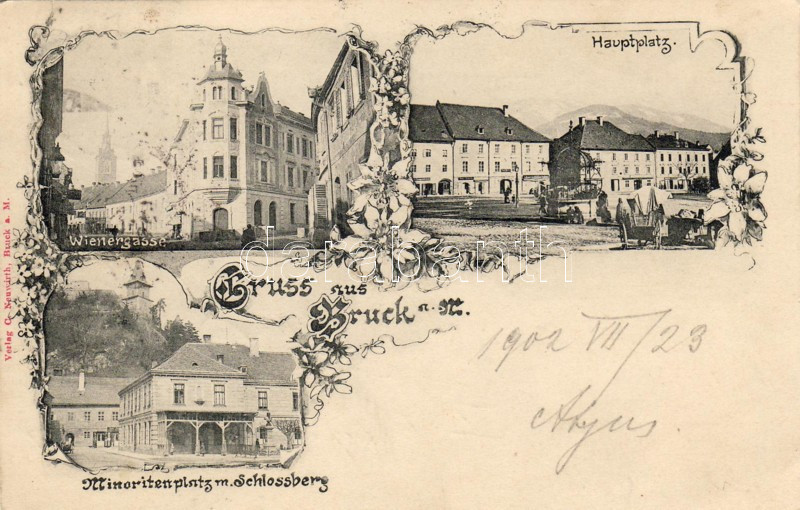 Hauptplatz.
Wienergasse
darabanth
Gruss aus
Bruck a. M.
1902 VII/23
Minoritenplatz m. Schlossberg
Verlag C. Neuwirth, Bruck a. M.